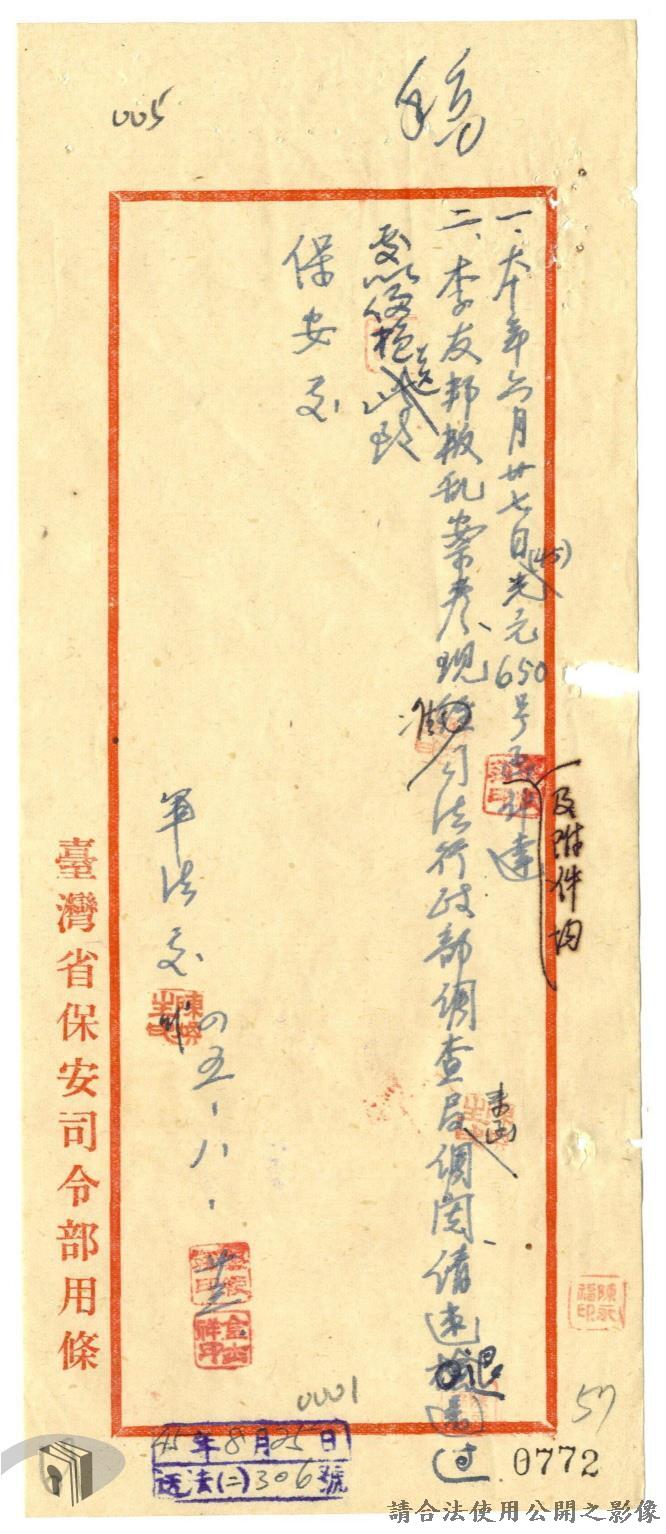 005
稿
一、本年六月廿七日(45)光元650号函計達
一及附件均
二、李友邦叛乱案卷、現准司法行政部調查局來函調閱、請速退還过
處以便檢送
保安處
軍法處
四五、八、廿三
臺灣省保安司令部用條
0001
45年8月25日
(二)306號
陳永福印
57
0772
請合法使用公開之影像